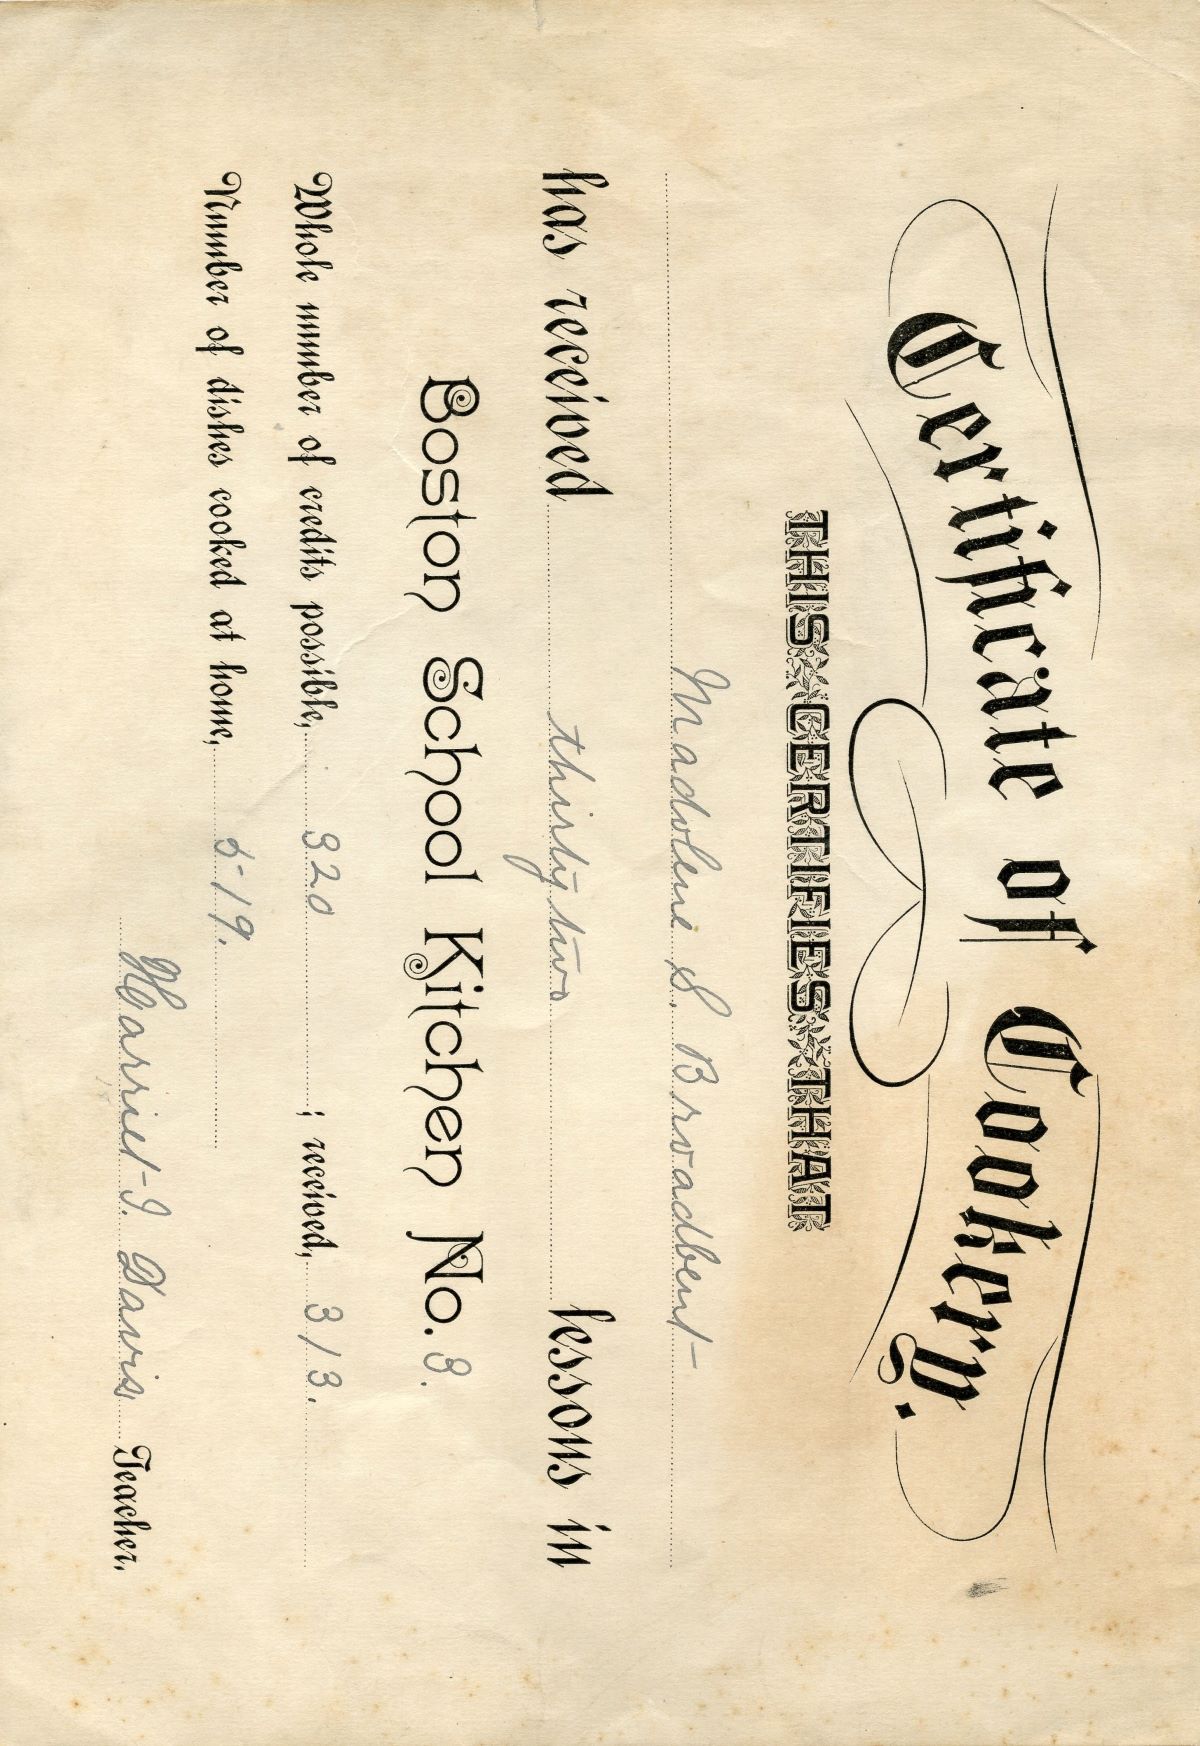 Certificate of Cookery.
THIS CERTIFIES THAT
Madolene S. Broadbent
has received thirty two lessons in
Boston School Kitchen No. 8.
Whole number of credits possible, 320 ; received, 313.
Number of dishes cooked at home, 519.
Harriet I. Davis Teacher.